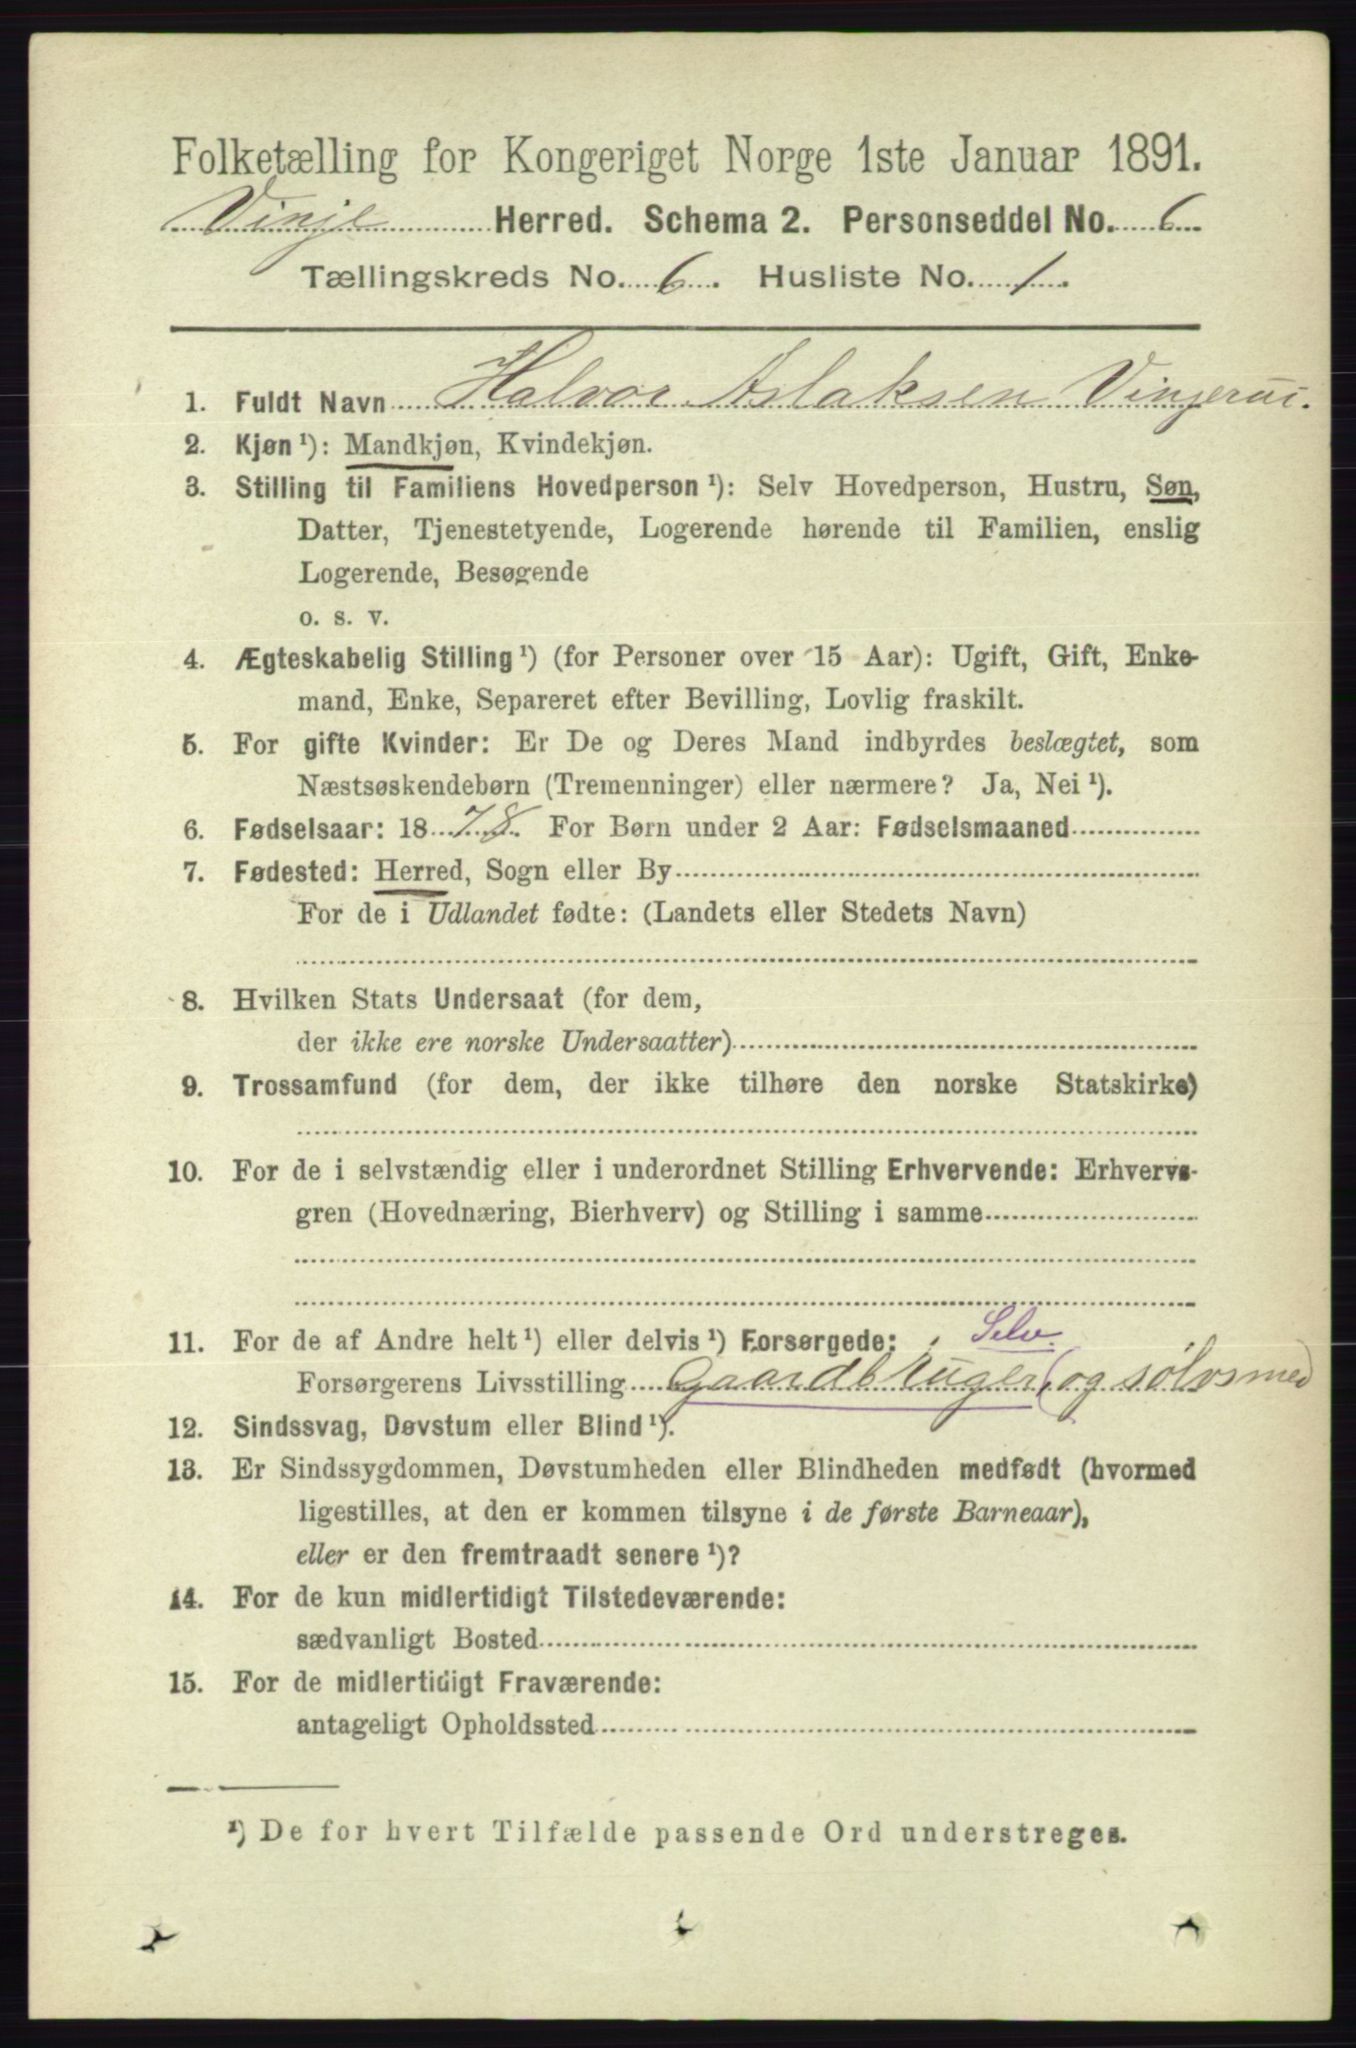 Folketælling for Kongeriget Norge 1ste Januar 1891.
Vinje Herred. Schema 2. Personseddel No. 6
Tællingskreds No. 6. Husliste No. 1.
1. Fuldt Navn Halvor Aslaksen Vinjerui.
2. Kjøn¹): Mandkjøn, Kvindekjøn.
3. Stilling til Familiens Hovedperson¹): Selv Hovedperson, Hustru, Søn,
Datter, Tjenestetyende, Logerende hørende til Familien, enslig
Logerende, Besøgende
o. s. v.
4. Ægteskabelig Stilling¹) (for Personer over 15 Aar): Ugift, Gift, Enke-
mand, Enke, Separeret efter Bevilling, Lovlig fraskilt.
5. For gifte Kvinder: Er De og Deres Mand indbyrdes beslægtet, som
Næstsøskendebørn (Tremenninger) eller nærmere? Ja, Nei¹).
6. Fødselsaar: 1878. For Børn under 2 Aar: Fødselsmaaned
7. Fødested: Herred, Sogn eller By
For de i Udlandet fødte: (Landets eller Stedets Navn)
8. Hvilken Stats Undersaat (for dem,
der ikke ere norske Undersaatter)
9. Trossamfund (for dem, der ikke tilhøre den norske Statskirke)
10. For de i selvstændig eller i underordnet Stilling Erhvervende: Erhvervs-
gren (Hovednæring, Bierhverv) og Stilling i samme
11. For de af Andre helt¹) eller delvis¹) Forsørgede: Selv
Forsørgerens Livsstilling Gaardbruger, (og sølvsmed
12. Sindssvag, Døvstum eller Blind¹).
13. Er Sindssygdommen, Døvstumheden eller Blindheden medfødt (hvormed
ligestilles, at den er kommen tilsyne i de første Barneaar),
eller er den fremtraadt senere¹)?
14. For de kun midlertidigt Tilstedeværende:
sædvanligt Bosted
15. For de midlertidigt Fraværende:
antageligt Opholdssted
¹) De for hvert Tilfælde passende Ord understreges.